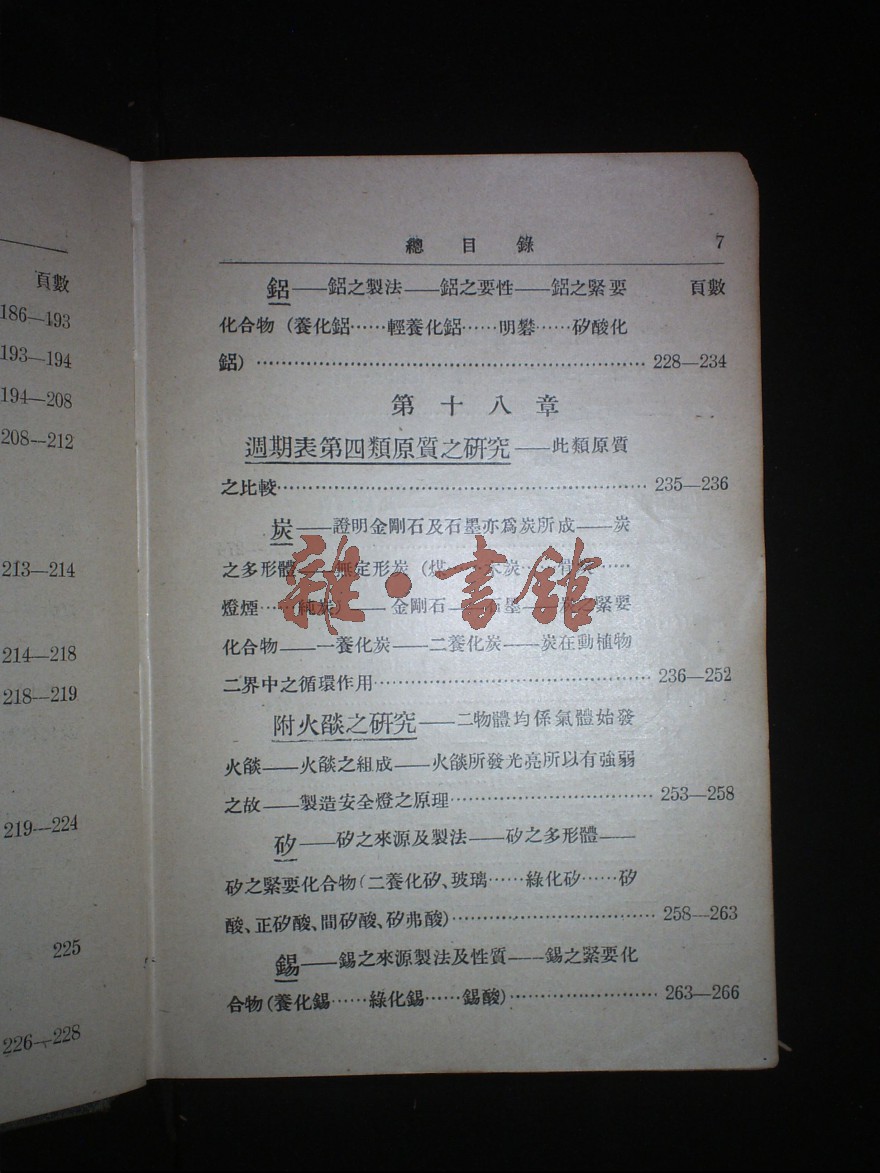 頁數
186—193
193—194
194—208
208—212
213—214
214—218
218—219
219—224
225
226—228
總目錄 7
鋁——鋁之製法——鋁之要性——鋁之緊要 頁數
化合物(養化鋁……輕養化鋁……明礬……矽酸化
鋁)……………………………………………… 228—234
第十八章
週期表第四類原質之研究——此類原質
之比較…………………………………………… 235—236
炭——證明金剛石及石墨亦爲炭所成——炭
之多形體——無定形炭(煤……木炭……骨炭……
燈煙……純炭)——金剛石——石墨——炭之緊要
化合物——一養化炭——二養化炭——炭在動植物
二界中之循環作用……………………………… 236—252
附火燄之研究——二物體均係氣體始發
火燄——火燄之組成——火燄所發光亮所以有強弱
之故——製造安全燈之原理…………………… 253—258
矽——矽之來源及製法——矽之多形體——
矽之緊要化合物(二養化矽、玻璃……綠化矽……矽
酸、正矽酸、間矽酸、矽弗酸)…………………… 258—263
錫——錫之來源製法及性質——錫之緊要化
合物(養化錫……綠化錫……錫酸)……………… 263—266
雜·書館